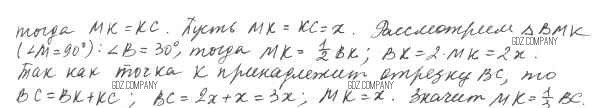 тогда MK = KC. Пусть MK = KC = x. Рассмотрим △BMK
GDZ.COMPANY
(∠M = 90°): ∠B = 30°, тогда MK = 1/2 BK; BK = 2·MK = 2x.
Так как точка K принадлежит отрезку BC, то
GDZ.COMPANY GDZ.COMPANY
BC = BK + KC; BC = 2x + x = 3x; MK = x. Значит MK = 1/3 BC.